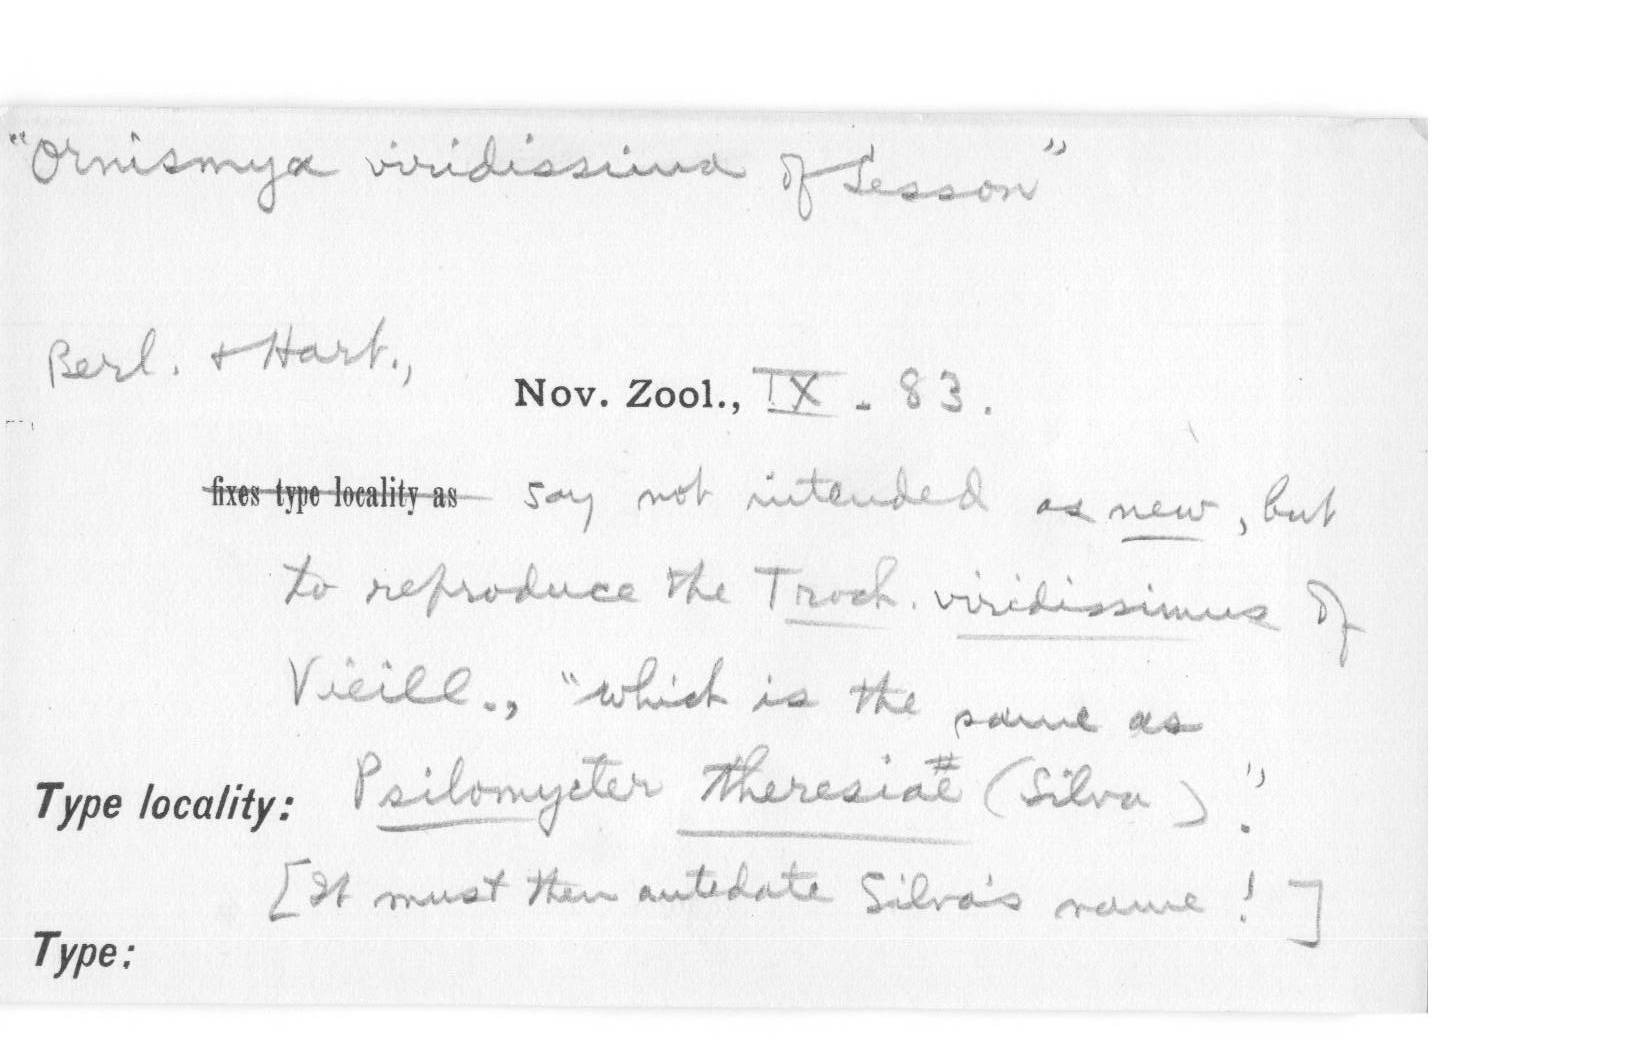 "Ornismya viridissima of Lesson"
Berl. + Hart.,
Nov. Zool., IX - 83.
fixes type locality as say not intended as new, but
to reproduce the Troch. viridissimus of
Vieill., "which is the same as
Type locality: Psilomycter theresiae (Silva)."
[It must then antedate Silva's name!]
Type: